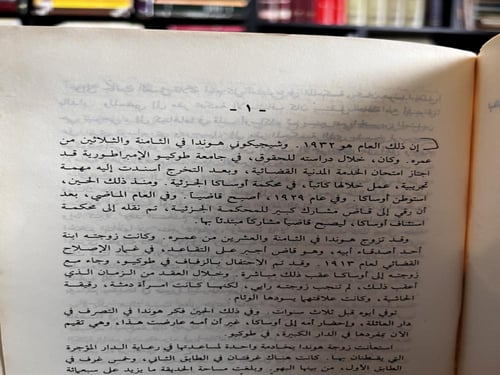 - ١ -
إن ذلك العام هو ١٩٣٢. وشيجيكوني هوندا في الثامنة والثلاثين من
عمره. وكان، خلال دراسته للحقوق، في جامعة طوكيو الإمبراطورية قد
اجتاز امتحان الخدمة المدنية القضائية، وبعد التخرج أسندت إليه مهمة
تجريبية، عمل خلالها كاتباً، في محكمة أوساكا الجزئية. ومنذ ذلك الحين،
استوطن أوساكا. وفي عام ١٩٢٩، أصبح قاضياً. وفي العام الماضي، بعد
أن رقي إلى قاض مشارك كبير للمحكمة الجزئية، تم نقله إلى محكمة
استئناف أوساكا، ليصبح قاضياً مشاركاً مبتدئاً بها.
وقد تزوج هوندا في الثامنة والعشرين من عمره. وكانت زوجته ابنة
أحد أصدقاء أبيه، وهو قاض أجبر على التقاعد، في غمار الإصلاح
القضائي لعام ١٩١٣. وقد تم الاحتفال بالزفاف في طوكيو، وجاء مع
زوجته إلى أوساكا عقب ذلك مباشرة. وخلال العقد من الزمان الذي
أعقب ذلك، لم تنجب زوجته رايي، لكنها كانت امرأة دمثة، رقيقة
الحاشية، وكانت علاقتهما يسودها الوئام.
توفي أبوه قبل ثلاث سنوات. وفي ذلك الحين فكر هوندا في التصرف في
دار العائلة، وإحضار أمه إلى أوساكا، غير أن أمه عارضت هذا، وهي تقيم
الآن بمفردها في الدار الكبيرة، في طوكيو.
استعانت زوجة هوندا بخادمة واحدة لمساعدتها في رعاية الدار المؤجرة
التي يقطنان بها. كانت هناك غرفتان في الطابق الثاني، وخمس غرف في
الطابق الأول، من بينها البهو. وبلغت مساحة الحديقة ما يزيد على سبعمائة